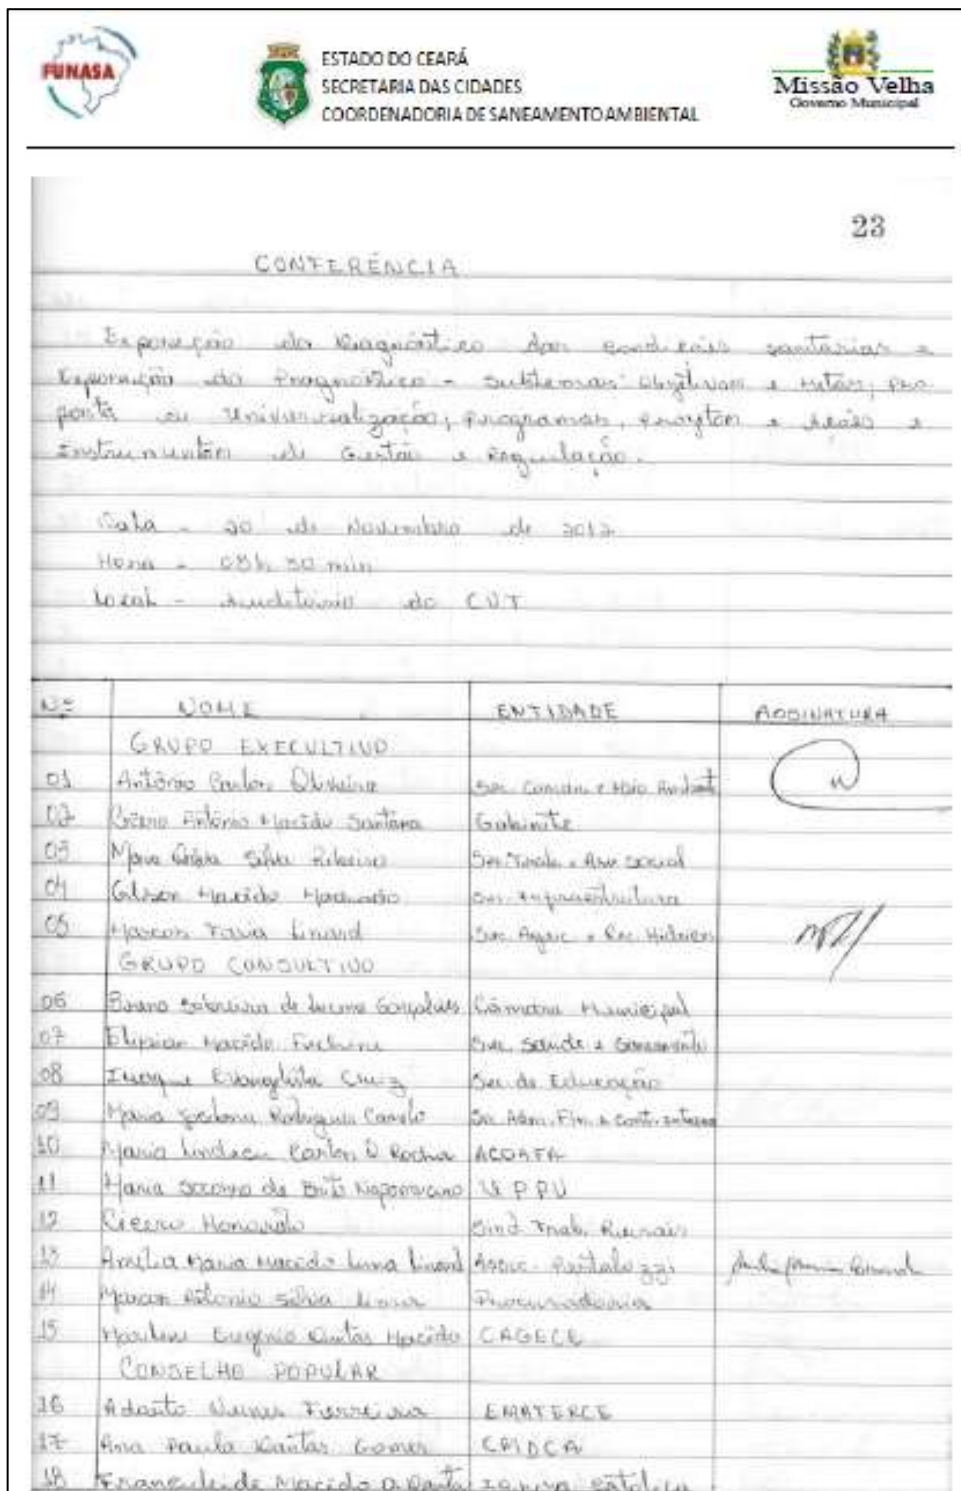 FUNASA
ESTADO DO CEARÁ
SECRETARIA DAS CIDADES
COORDENADORIA DE SANEAMENTO AMBIENTAL
Missão Velha
Governo Municipal
23
CONFERÊNCIA
Exposição do Diagnóstico das condições sanitárias e
Exposição do Prognóstico - Subtemas: Objetivos e Metas; Pro
posta de Universalização; Programas, Projetos e Ações e
Instrumentos de Gestão e Regulação.
Data - 20 de Novembro de 2012
Hora - 08h 30 min
Local - Auditório do CVT
Nº NOME ENTIDADE ASSINATURA
GRUPO EXECULTIVO
01 Antônio Oliveira Sec. e Meio Ambiente
02 Cícero Antônio Macêdo Santana Gabinete
03 Maria Silva Ribeiro Sec. Trab. e Ass. Social
04 Gilson Macêdo Machado Sec. Infraestrutura
05 Marcos Linard Sec. Agric. e Rec. Hídricos
GRUPO CONSULTIVO
06 de Lucena Gonçalves Câmara Municipal
07 Macêdo Sec. Saúde e Saneamento
08 Evangelista Cruz Sec. de Educação
09 Maria Rodrigues Sec. Adm. Fin. e Contr. Interno
10 Maria Rocha
11 Maria Socorro de Brito Nepomuceno
12 Cícero Honorato Sind. Trab. Rurais
13 Amélia Maria Macêdo Luna Linard Assoc. Pestalozzi
14 Marcos Antonio Silva Procuradoria
15 Eugênio Dantas Macêdo CAGECE
CONSELHO POPULAR
16 Adauto Nunes Ferreira EMATERCE
17 Ana Paula Dantas Gomes CMDCA
18 Francileide Macêdo D. Dantas Igreja Católica